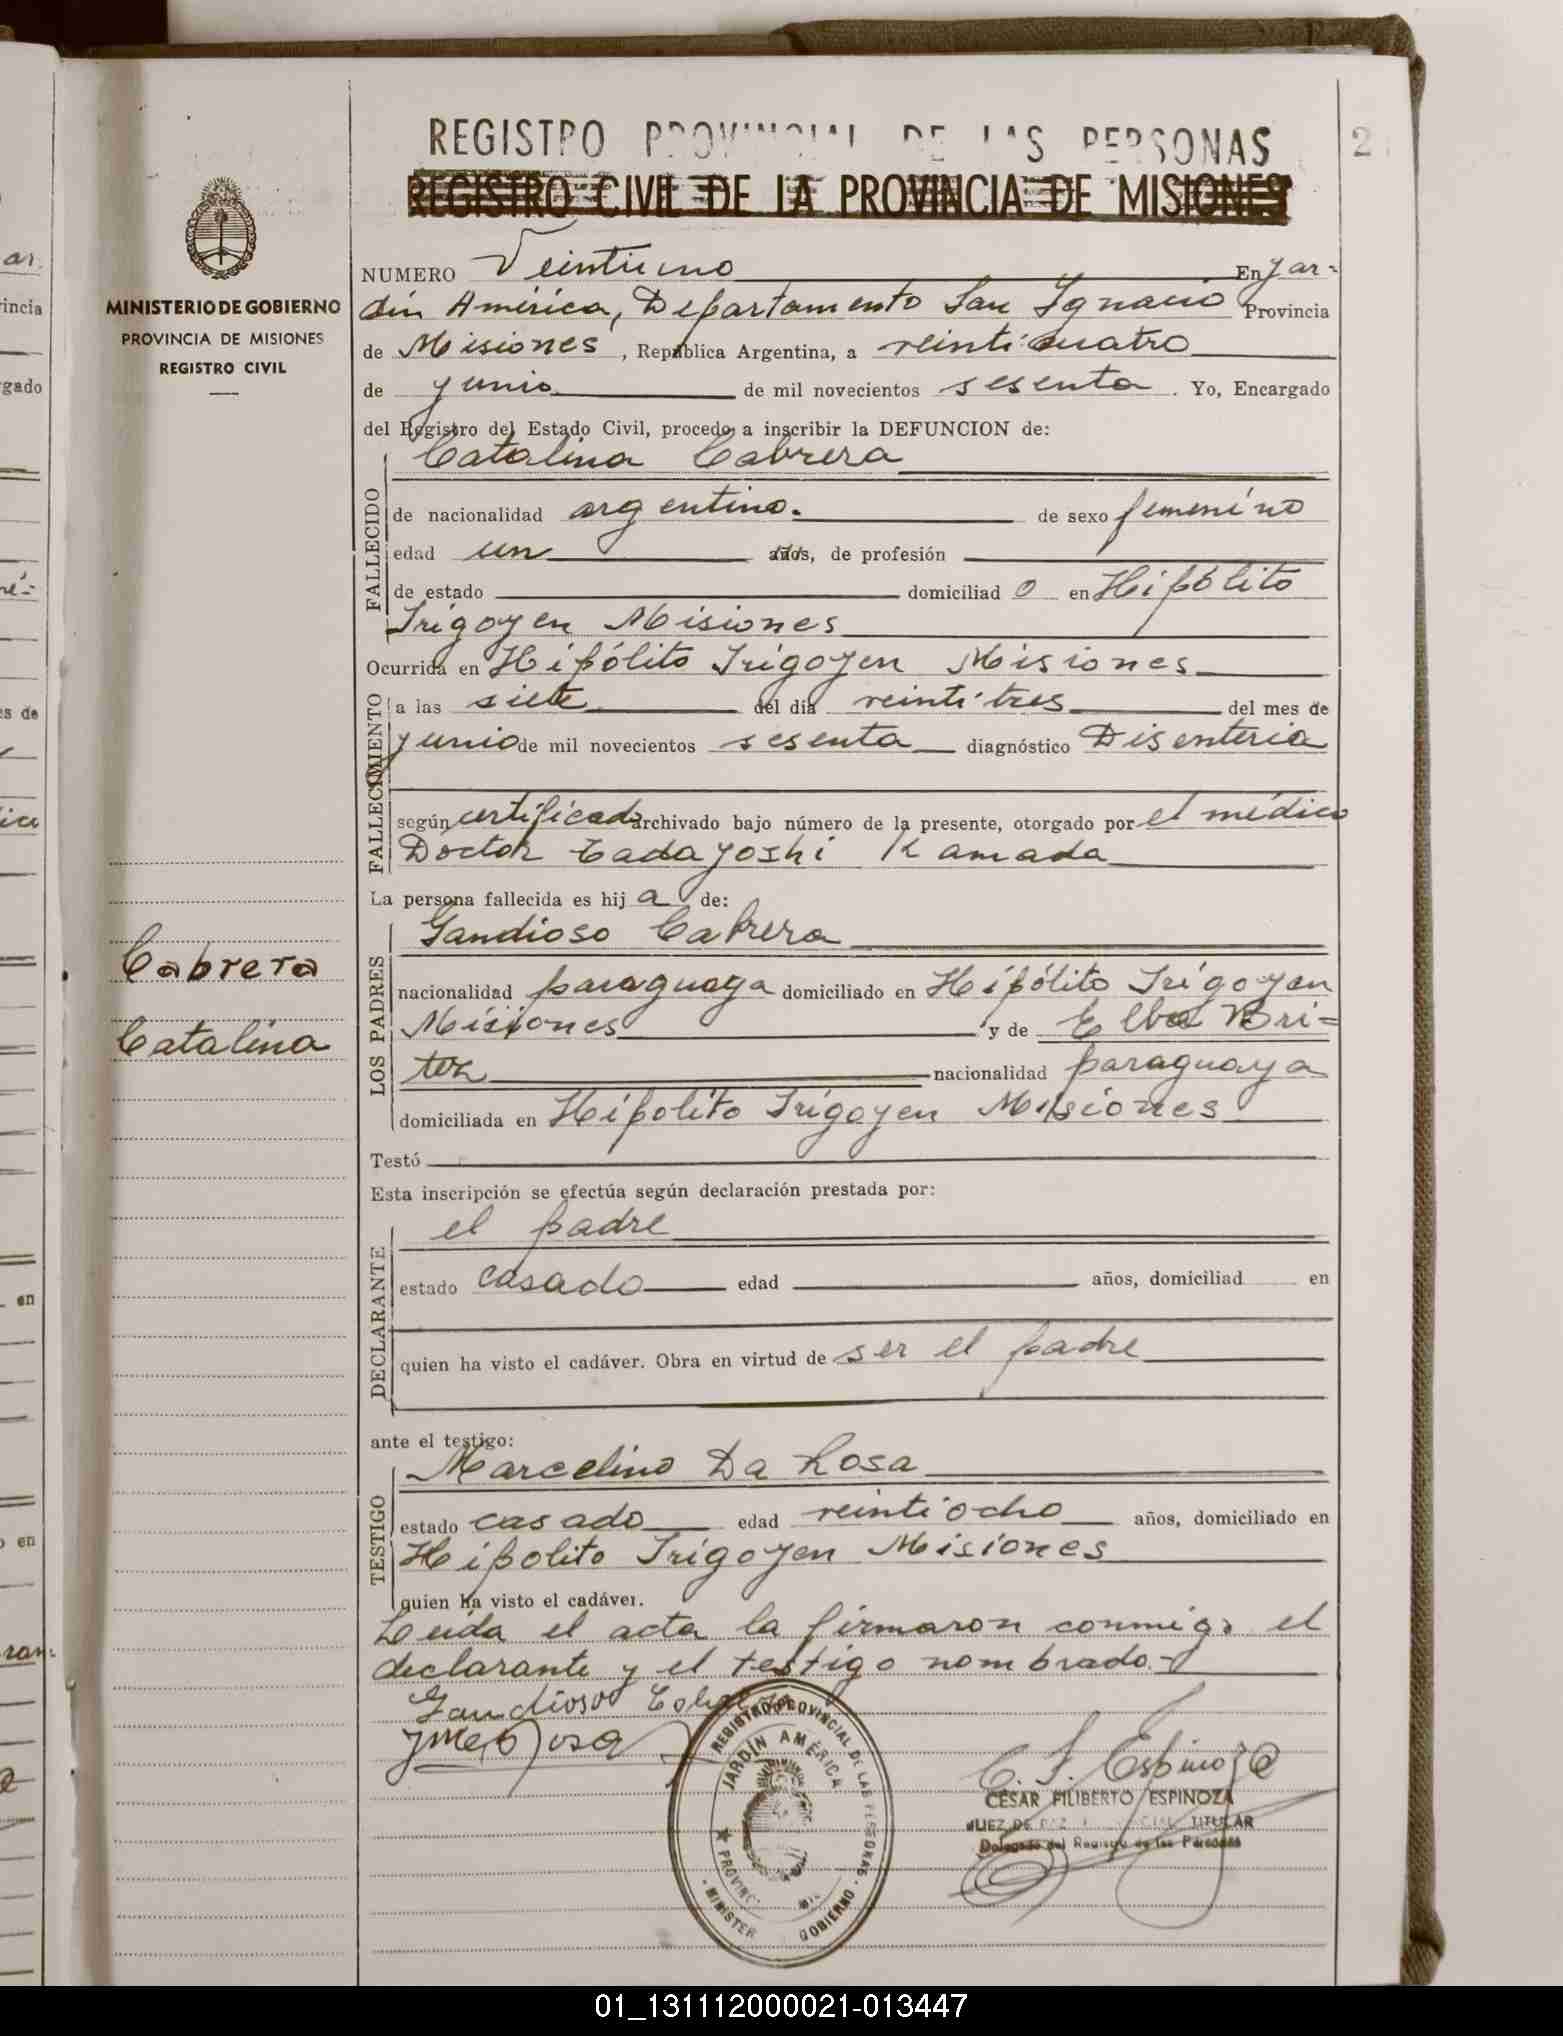 REGISTRO PROVINCIAL DE LAS PERSONAS
REGISTRO CIVIL DE LA PROVINCIA DE MISIONES
2
MINISTERIO DE GOBIERNO
PROVINCIA DE MISIONES
REGISTRO CIVIL
NUMERO Veintiuno En Jar-
dín América, Departamento San Ignacio Provincia
de Misiones, República Argentina, a veinticuatro
de junio de mil novecientos sesenta. Yo, Encargado
del Registro del Estado Civil, procedo a inscribir la DEFUNCION de:
Catalina Cabrera
FALLECIDO
de nacionalidad argentina. de sexo femenino
edad un años, de profesión
de estado domiciliad o en Hipólito
Irigoyen Misiones
Ocurrida en Hipólito Irigoyen Misiones
FALLECIMIENTO
a las siete del día veintitres del mes de
junio de mil novecientos sesenta diagnóstico Disenteria
según certificado archivado bajo número de la presente, otorgado por el médico
Doctor Tadayoshi Kamada
La persona fallecida es hij a de:
Gandioso Cabrera
LOS PADRES
nacionalidad paraguaya domiciliado en Hipólito Irigoyen
Misiones y de Elba Bri=
tez nacionalidad paraguaya
domiciliada en Hipolito Irigoyen Misiones
Cabrera
Catalina
Testó
Esta inscripción se efectúa según declaración prestada por:
el padre
DECLARANTE
estado casado edad años, domiciliad en
quien ha visto el cadáver. Obra en virtud de ser el padre
ante el testigo:
Marcelino Da Rosa
TESTIGO
estado casado edad veintiocho años, domiciliado en
Hipolito Irigoyen Misiones
quien ha visto el cadáver.
Leída el acta la firmaron conmigo el
declarante y el testigo nombrado.-
Gandioso Cabrera
REGISTRO PROVINCIAL DE LAS PERSONAS
JARDÍN AMÉRICA
C. F. Espinoza
CESAR FILIBERTO ESPINOZA
JUEZ DE PAZ TITULAR
Delegado del Registro de las Personas
01_131112000021-013447